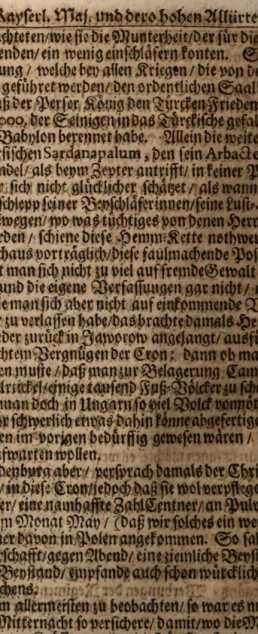 Kayserl. Maj. und dero hohen Alliirte
chteten/ wie sie die Munterheit/ der für die
enden/ ein wenig einschläfern konten. S
ung/ welche bey allen Kriegen/ die von d
geführet werden/ den ordentlichen Saal
aß der Perser König den Türcken Frieden
000, der Seinigen in das Türckische gefal
Babylon berennet habe. Allein die weite
sischen Sardanapalum, den sein Arbacte
ndel/ als beym Zepter antrifft/ in keiner P
sich nicht glücklicher schätzet/ als wann
schlepp seiner Beyschläferinnen/ seine Lust-
wegen/ wo was tüchtiges von denen Herr
rden/ schiene diese Hemm-Kette nothwen
chaus vorträglich/ diese faulmachende Pos
t man sich nicht zu viel auf fremde Gewalt
und die eigene Verfassungen gar nicht/
ie man sich aber nicht auf einkommende T
r zu verlassen habe/ das brachte damals He
eder zurück in Jaworow angelangt/ ausfü
chtem Vergnügen der Cron: dann ob ma
en muste/ daß man zur Belagerung Cam
Artickel/ einige tausend Fuß-Völcker zu sch
man doch in Ungarn so viel Volck vonnöt
r schwerlich etwas dahin könne abgefertige
en im vorigen bedürffig gewesen wären/
fwarten wollen.
denburg aber/ versprach damals der Chri
/ in diese Cron/ jedoch daß sie wol verpflege
er/ eine namhaffte Zahl Centner/ an Pulv
m Monat May/ (daß wir solches ein we
ner davon in Polen angekommen. So sa
schafft/ gegen Abend/ eine ziemliche Beyst
Beystand/ empfande auch schon würcklich
chens.
m allermeisten zu beobachten/ so war es n
Mitternacht so versichere/ damit/ wo die M